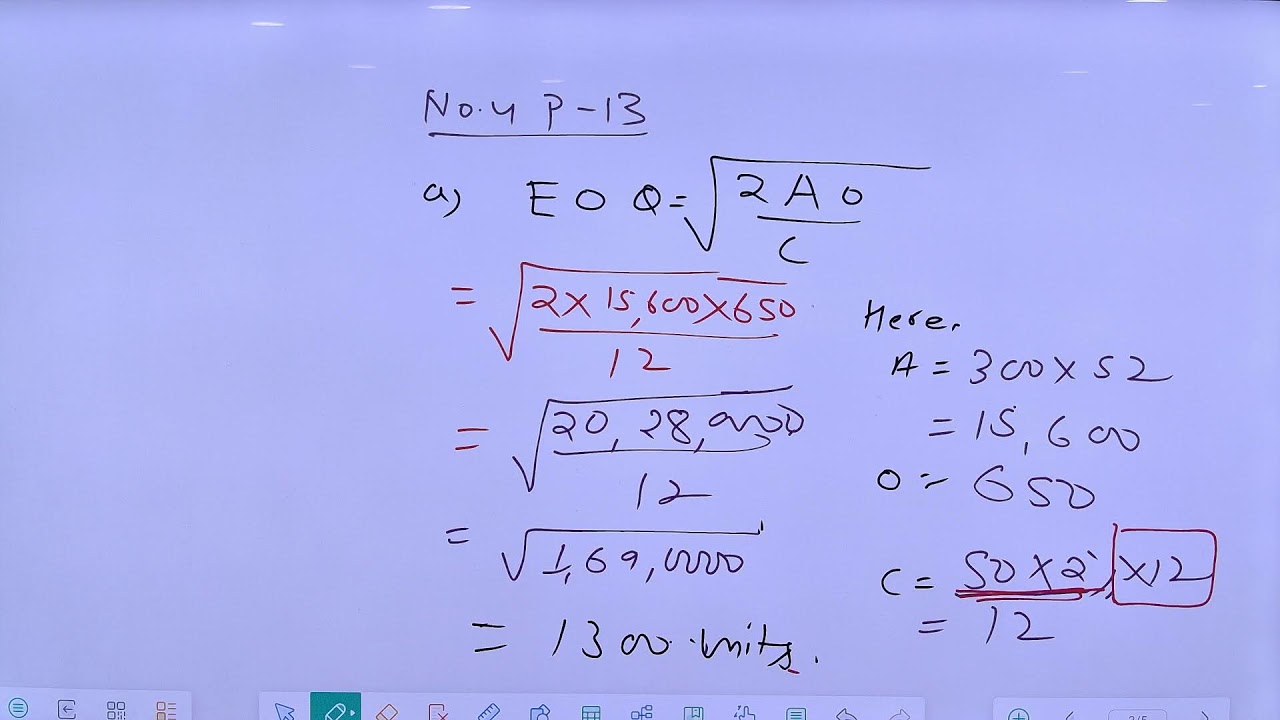 No.4 P-13
a) EOQ = √(2AO / C)
= √(2×15,600×650 / 12)
= √(20,28,0000 / 12)
= √1,69,0000
= 1300 units.
Here,
A = 300×52
= 15,600
O = 650
C = 50×2%×12
= 12
2/5